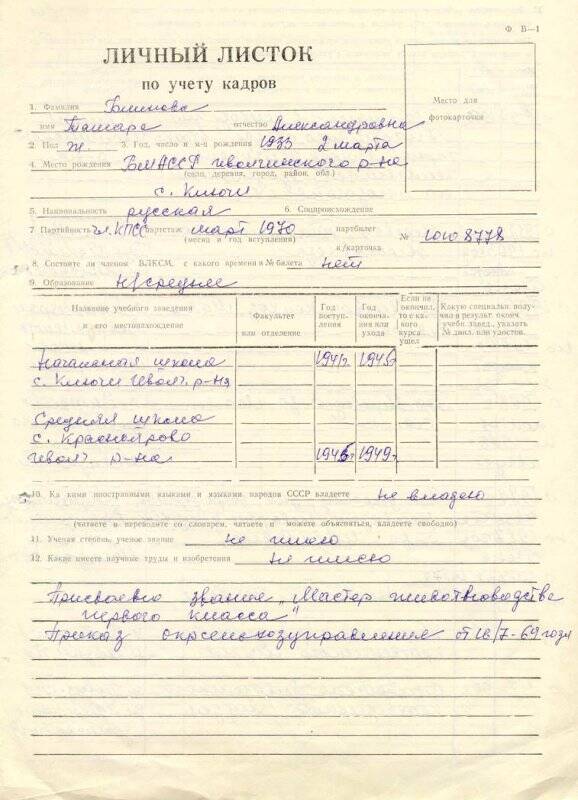 Ф. В—1
ЛИЧНЫЙ ЛИСТОК
по учету кадров
Место для
фотокарточки
1. Фамилия Блинова
имя Тамара отчество Александровна
2. Пол ж. 3. Год, число и м-ц рождения 1933 2 марта
4. Место рождения БМАССР Иволгинского р-на
(село, деревня, город, район, обл.)
с. Ключи
5. Национальность русская 6. Соцпроисхождение
7 Партийность чл. КПСС партстаж март 1970 партбилет
(месяц и год вступления) к/карточка № 10108778
8. Состоите ли членом ВЛКСМ, с какого времени и № билета нет
9. Образование н/среднее
Название учебного заведения и его местонахождение
Факультет или отделение
Год поступления
Год окончания или ухода
Если не окончил, то с какого курса ушел
Какую специальн. получил в результ. оконч. учебн. завед., указать № дипл. или удостов.
Начальная школа 1941г. 1945г
с. Ключи Ивол. р-на
Средняя школа
с. Красноярово
Ивол. р-на 1945г. 1949г.
10. Ка кими иностранными языками и языками народов СССР владеете не владею
(читаете и переводите со словарем, читаете и можете объясняться, владеете свободно)
11. Ученая степень, ученое звание не имею
12. Какие имеете научные труды и изобретения не имею
Присвоено звание „Мастер животноводства
первого класса"
Приказ окрсельхозуправления от 18/7-69 года